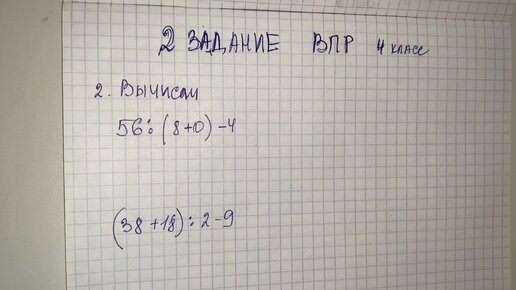 2 ЗАДАНИЕ ВПР 4 класс
2. Вычисли
56:(8+0)-4
(38+18):2-9